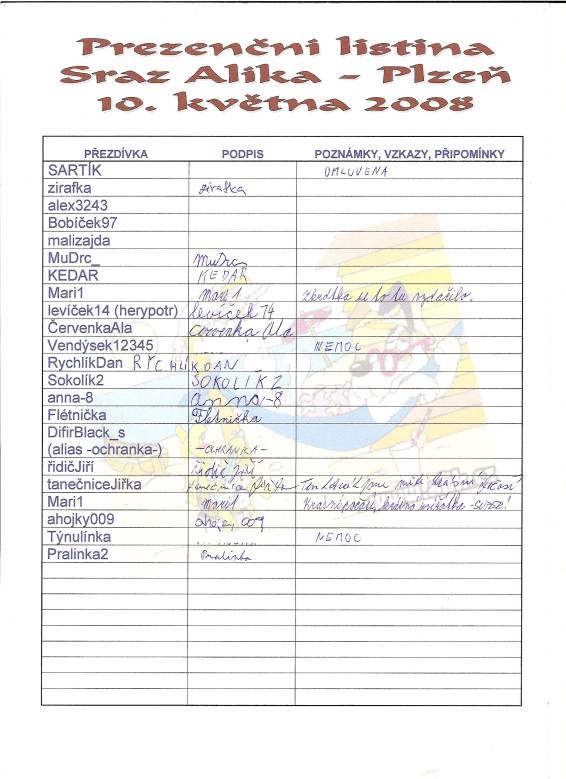 Prezenční listina
Sraz Alika - Plzeň
10. května 2008
PŘEZDÍVKA PODPIS POZNÁMKY, VZKAZY, PŘIPOMÍNKY
SARTÍK OMLUVENA
zirafka zirafka
alex3243
Bobíček97
malizajda
MuDrc_ MuDrc_
KEDAR KEDAR
Mari1 mari1 zkrátka se to tu vydařilo.
levíček14 (herypotr) levíček 14
ČervenkaAla Červenka Ala
Vendýsek12345 NEMOC
RychlíkDan RYCHLÍKDAN
Sokolík2 SOKOLÍK2
anna-8 anna-8
Flétnička Flétnička
DifirBlack_s
(alias -ochranka-) -OCHRANKA-
řidičJiří řidič Jiří
tanečniceJiřka tanečnice Jiřka
Mari1 mari1 krásné počasí,
ahojky009 ahojky 009
Týnulínka NEMOC
Pralinka2 Pralinka